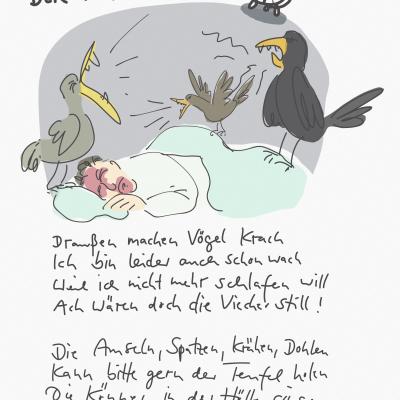 Draußen machen Vögel Krach
Ich bin leider auch schon wach
Weil ich nicht mehr schlafen will
Ach wären doch die Viecher still!
Die Amseln, Spatzen, Krähen, Dohlen
Kann bitte gern der Teufel holen
Die können in der Hölle